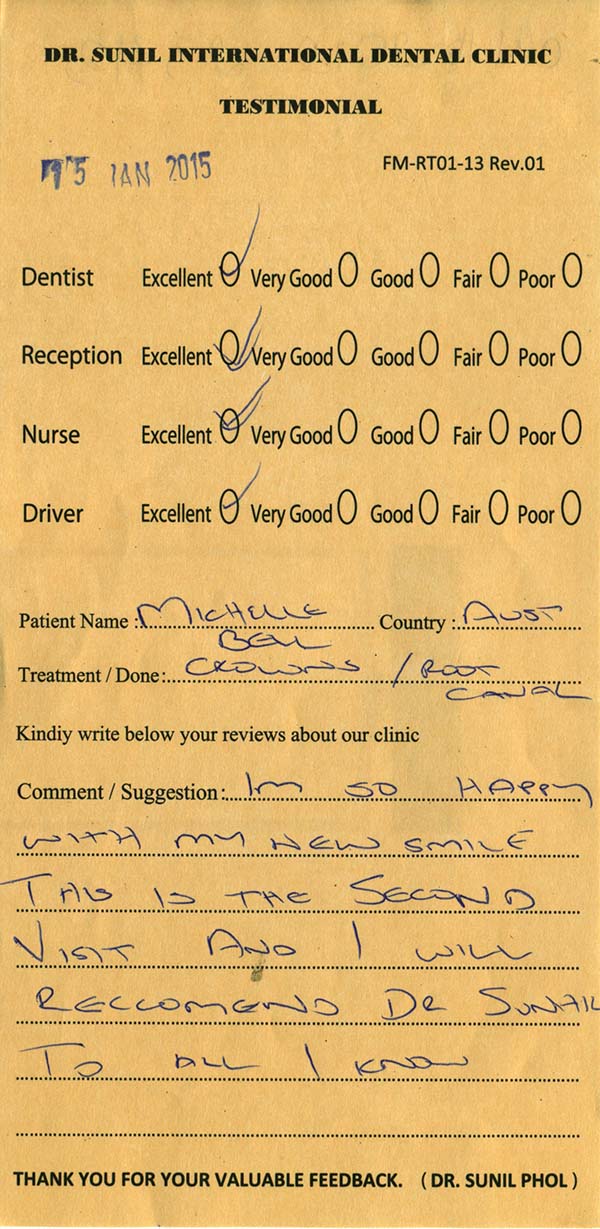 DR. SUNIL INTERNATIONAL DENTAL CLINIC
TESTIMONIAL
15 JAN 2015
FM-RT01-13 Rev.01
Dentist Excellent Very Good Good Fair Poor
Reception Excellent Very Good Good Fair Poor
Nurse Excellent Very Good Good Fair Poor
Driver Excellent Very Good Good Fair Poor
Patient Name : MICHELLE Country : AUST
BELL
Treatment / Done: CROWNS / ROOT
CANAL
Kindiy write below your reviews about our clinic
Comment / Suggestion: Im SO HAPPY
WITH MY NEW SMILE
THIS IS THE SECOND
VISIT AND I WILL
RECCOMEND DR SUNAIL
TO ALL I KNOW
THANK YOU FOR YOUR VALUABLE FEEDBACK. ( DR. SUNIL PHOL )